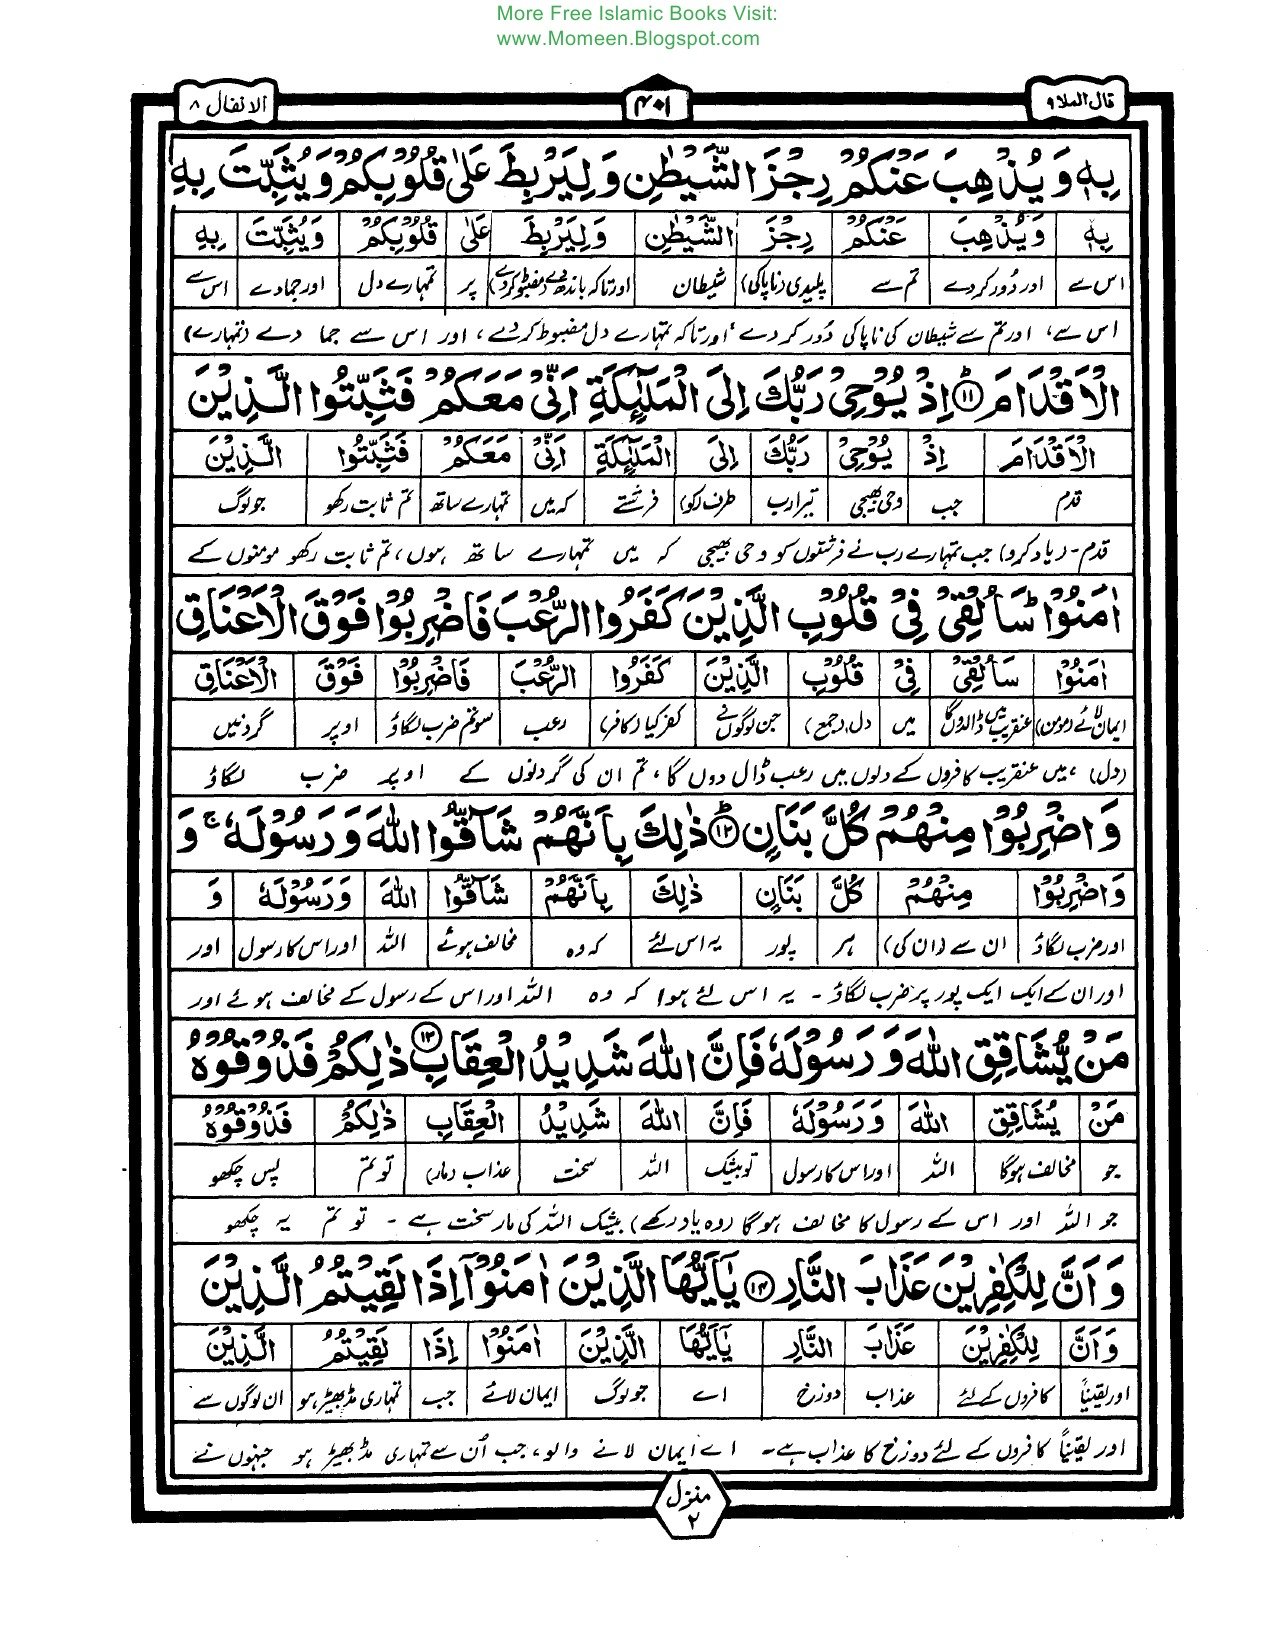 More Free Islamic Books Visit:
www.Momeen.Blogspot.com
قال الملا ۹
۴۰۱
الانفال ۸
بِهٖ وَيُذْهِبَ عَنْكُمْ رِجْزَ الشَّيْطٰنِ وَلِيَرْبِطَ عَلٰى قُلُوْبِكُمْ وَيُثَبِّتَ بِهِ
بِهٖ وَيُذْهِبَ عَنْكُمْ رِجْزَ الشَّيْطٰنِ وَلِيَرْبِطَ عَلٰى قُلُوْبِكُمْ وَيُثَبِّتَ بِهِ
اس سے اور دُور کر دے تم سے پلیدی (ناپاکی) شیطان اور تاکہ باندھ دے (مضبوط کر دے) پر تمہارے دل اور جما دے اس سے
اس سے، اور تم سے شیطان کی ناپاکی دُور کر دے، اور تاکہ تمہارے دل مضبوط کر دے، اور اس سے جما دے (تمہارے)
الْاَقْدَامَ ۱۱ اِذْ يُوْحِيْ رَبُّكَ اِلَى الْمَلٰٓئِكَةِ اَنِّيْ مَعَكُمْ فَثَبِّتُوا الَّذِيْنَ
الْاَقْدَامَ اِذْ يُوْحِيْ رَبُّكَ اِلَى الْمَلٰٓئِكَةِ اَنِّيْ مَعَكُمْ فَثَبِّتُوا الَّذِيْنَ
قدم جب وحی بھیجی تیرا رب طرف (کو) فرشتے کہ میں تمہارے ساتھ تم ثابت رکھو جو لوگ
قدم۔ (یاد کرو) جب تمہارے رب نے فرشتوں کو وحی بھیجی کہ میں تمہارے ساتھ ہوں، تم ثابت رکھو مومنوں کے
اٰمَنُوْا سَاُلْقِيْ فِيْ قُلُوْبِ الَّذِيْنَ كَفَرُوا الرُّعْبَ فَاضْرِبُوْا فَوْقَ الْاَعْنَاقِ
اٰمَنُوْا سَاُلْقِيْ فِيْ قُلُوْبِ الَّذِيْنَ كَفَرُوا الرُّعْبَ فَاضْرِبُوْا فَوْقَ الْاَعْنَاقِ
ایمان لائے (مومن) عنقریب میں ڈالدوں گا میں دل (جمع) جن لوگوں نے کفر کیا (کافر) رعب سو تم ضرب لگاؤ اوپر گردنیں
(دل)، میں عنقریب کافروں کے دلوں میں رعب ڈال دوں گا، تم ان کی گردنوں کے اوپر ضرب لگاؤ
وَاضْرِبُوْا مِنْهُمْ كُلَّ بَنَانٍ ۱۲ ذٰلِكَ بِاَنَّهُمْ شَآقُّوا اللهَ وَرَسُوْلَهٗ ج وَ
وَاضْرِبُوْا مِنْهُمْ كُلَّ بَنَانٍ ذٰلِكَ بِاَنَّهُمْ شَآقُّوا اللهَ وَرَسُوْلَهٗ وَ
اور ضرب لگاؤ ان سے (ان کی) ہر پور یہ اس لئے کہ وہ مخالف ہوئے اللہ اور اس کا رسول اور
اور ان کے ایک ایک پور پر ضرب لگاؤ۔ یہ اس لئے ہوا کہ وہ اللہ اور اس کے رسول کے مخالف ہوئے اور
مَنْ يُّشَاقِقِ اللهَ وَرَسُوْلَهٗ فَاِنَّ اللهَ شَدِيْدُ الْعِقَابِ ۱۳ ذٰلِكُمْ فَذُوْقُوْهُ
مَنْ يُّشَاقِقِ اللهَ وَرَسُوْلَهٗ فَاِنَّ اللهَ شَدِيْدُ الْعِقَابِ ذٰلِكُمْ فَذُوْقُوْهُ
جو مخالف ہوگا اللہ اور اس کا رسول تو بیشک اللہ سخت عذاب (مار) تو تم پس چکھو
جو اللہ اور اس کے رسول کا مخالف ہوگا (وہ یاد رکھے) بیشک اللہ کی مار سخت ہے۔ تو تم یہ چکھو
وَاَنَّ لِلْكٰفِرِيْنَ عَذَابَ النَّارِ ۱۴ يٰٓاَيُّهَا الَّذِيْنَ اٰمَنُوْٓا اِذَا لَقِيْتُمُ الَّذِيْنَ
وَاَنَّ لِلْكٰفِرِيْنَ عَذَابَ النَّارِ يٰٓاَيُّهَا الَّذِيْنَ اٰمَنُوْا اِذَا لَقِيْتُمُ الَّذِيْنَ
اور یقیناً کافروں کے لئے عذاب دوزخ اے جو لوگ ایمان لائے جب تمہاری مڈبھیڑ ہو ان لوگوں سے
اور یقیناً کافروں کے لئے دوزخ کا عذاب ہے۔ اے ایمان لانے والو، جب اُن سے تمہاری مڈبھیڑ ہو جنہوں نے
منزل
۲